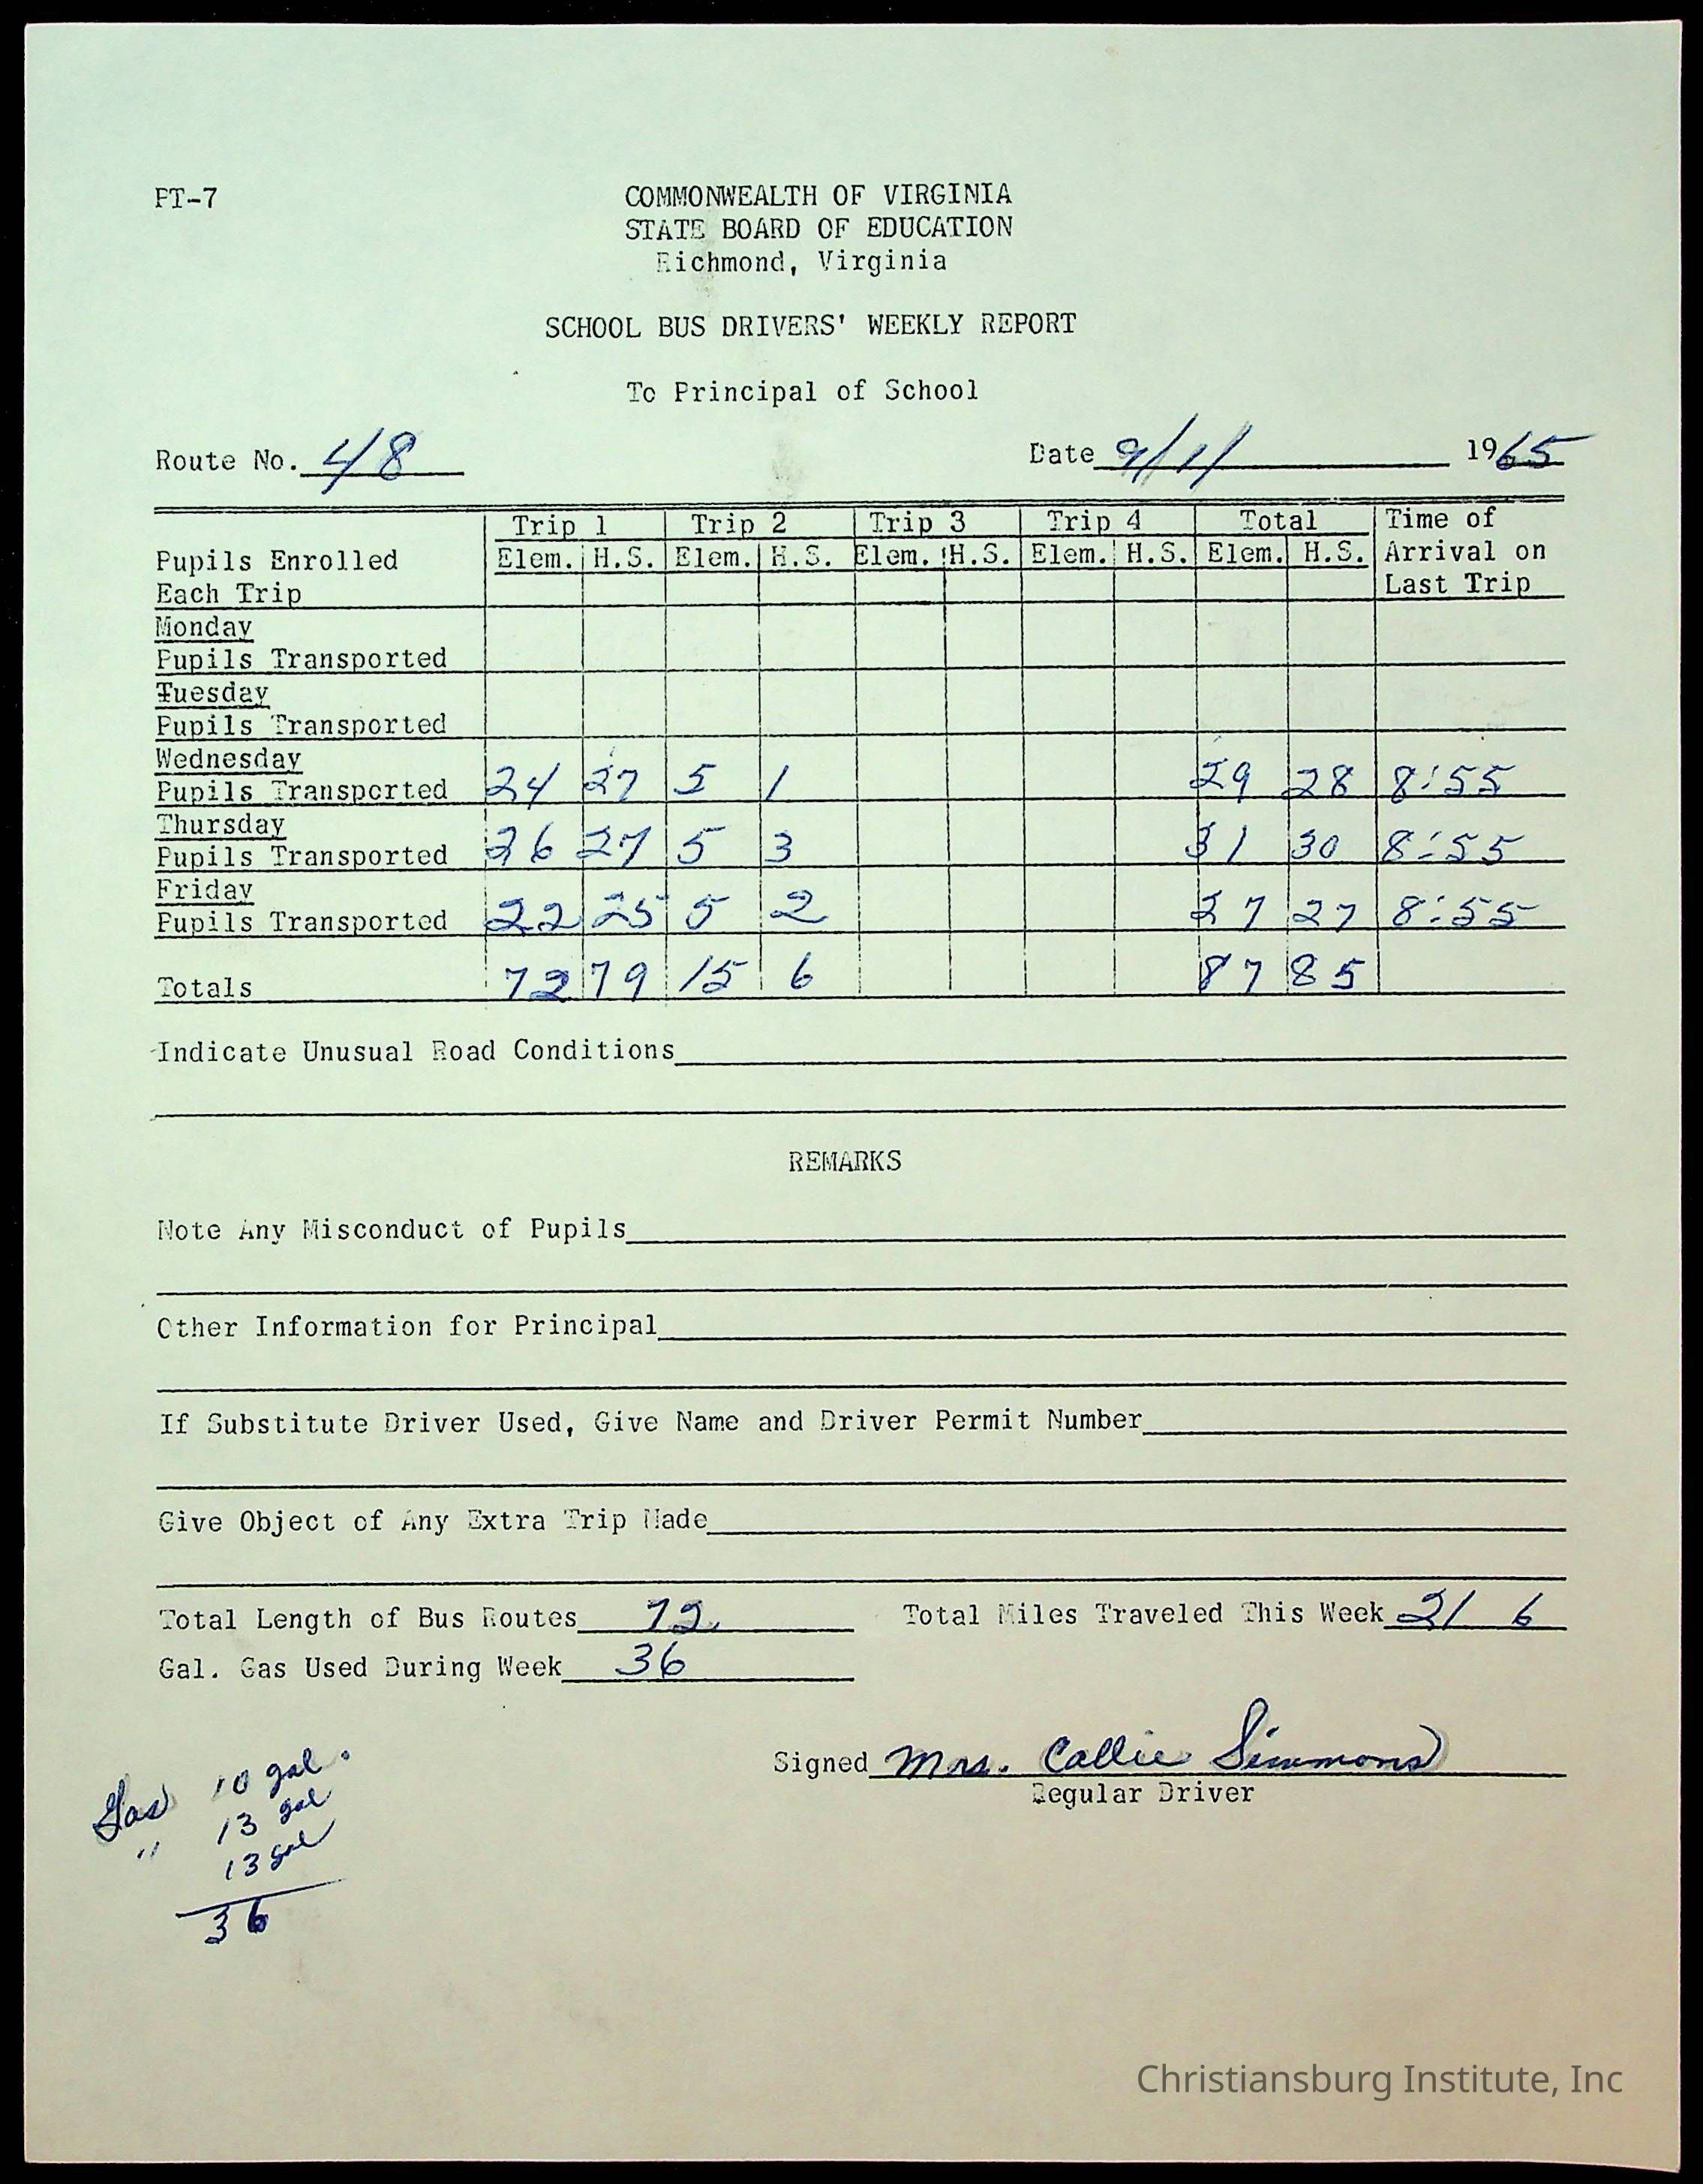 PT-7
COMMONWEALTH OF VIRGINIA
STATE BOARD OF EDUCATION
Richmond, Virginia
SCHOOL BUS DRIVERS' WEEKLY REPORT
To Principal of School
Route No. 48 Date 9/1/ 1965
Trip 1 Trip 2 Trip 3 Trip 4 Total Time of
Pupils Enrolled Elem. H.S. Elem. H.S. Elem. H.S. Elem. H.S. Elem. H.S. Arrival on
Each Trip Last Trip
Monday
Pupils Transported
Tuesday
Pupils Transported
Wednesday
Pupils Transported 24 27 5 1 29 28 8:55
Thursday
Pupils Transported 26 27 5 3 31 30 8:55
Friday
Pupils Transported 22 25 5 2 27 27 8:55
Totals 72 79 15 6 87 85
Indicate Unusual Road Conditions
REMARKS
Note Any Misconduct of Pupils
Other Information for Principal
If Substitute Driver Used, Give Name and Driver Permit Number
Give Object of Any Extra Trip Made
Total Length of Bus Routes 72 Total Miles Traveled This Week 21 6
Gal. Gas Used During Week 36
Signed Mrs. Callie Simmons
Regular Driver
Gas 10 gal.
" 13 gal
13 gal
36
Christiansburg Institute, Inc